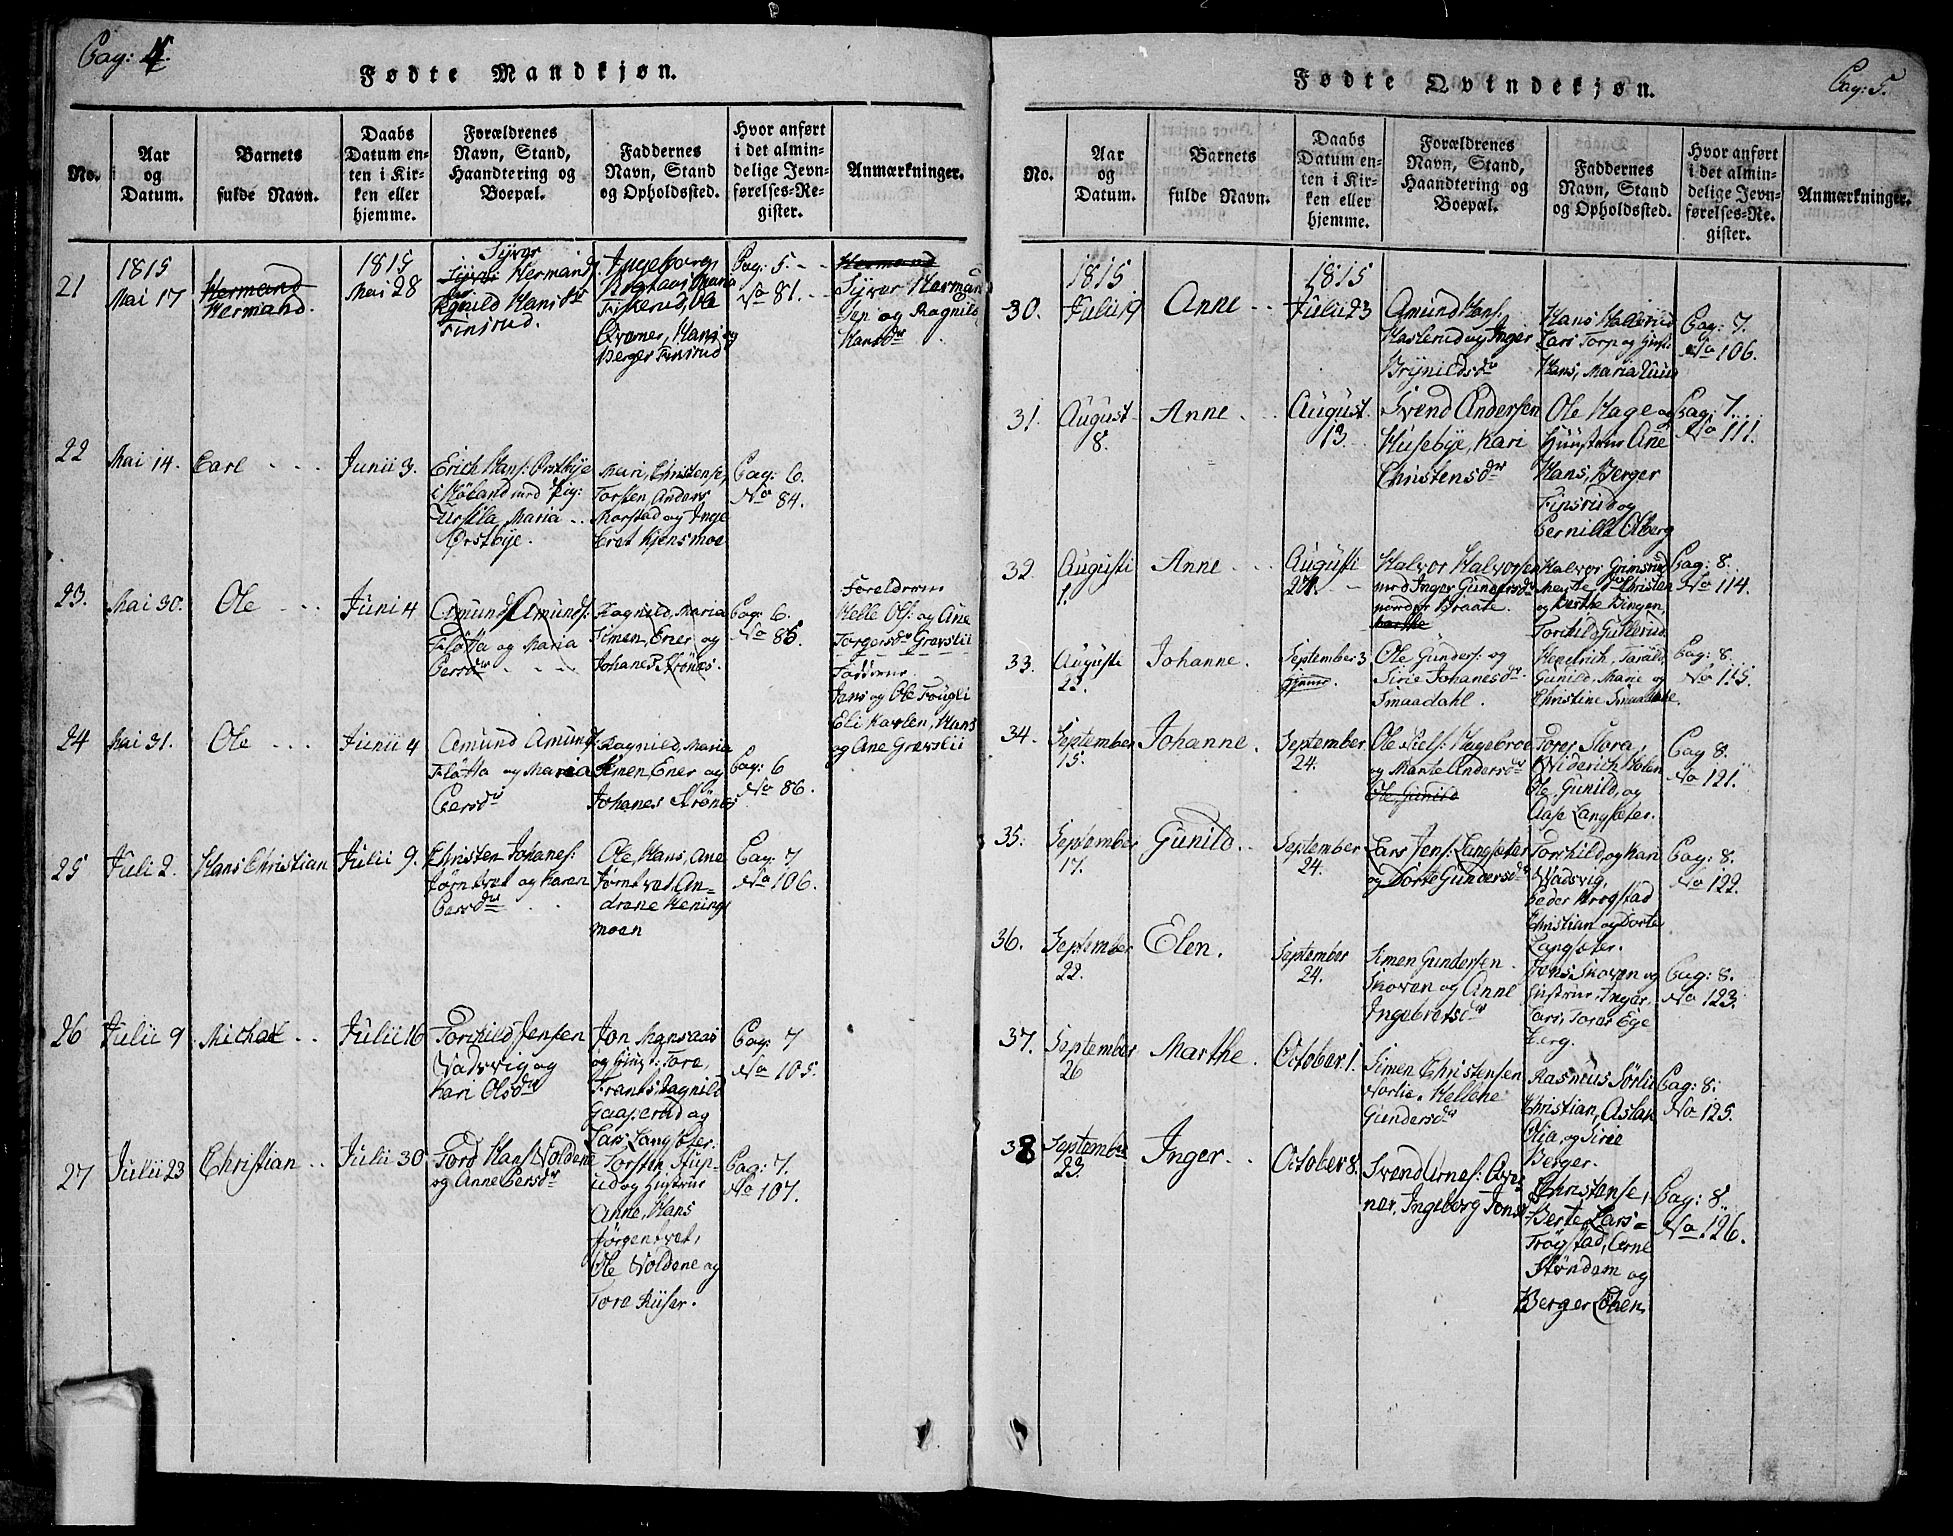 Pag: 4.
Fødte Mandkjøn.
No.
Aar
og
Datum.
Barnets
fulde Navn.
Daabs
Datum en-
ten i Kir-
ken eller
hjemme.
Forældrenes
Navn, Stand,
Haandtering og
Boepæl.
Faddernes
Navn, Stand
og Opholdssted.
Hvor anført
i det almin-
delige Jevn-
førelses-Re-
gister.
Anmærkninger.
21
1815
Mai 17
Hermand
Hermand.
1815
Mai 28
Syver
Hermands
Hansdr
Finsrud.
Ingeborg
Maria
Ole
Qvorner, Hans og
Berger Finsrud
Pag: 5.
No 81.
Hermand
Syver Herman
sen og Ragnild
Hansdr
22
Mai 14.
Carl
Junii 3.
Erich Hans: Ørstbye
i Høland med Pig:
Maria
Ørstbye.
Mari, Christense,
Torsten, Anders
Morstad og Inge
bret Kjensmoe
Pag: 6.
No 84.
23.
Mai 30.
Ole
Juni 4
Amund Amunds:
Fløtta og Maria
Persdr
Ragnild, Maria
Simen, Ener og
Johanes Krønes.
Pag: 6.
No 85
Foreldrene
Helle Ols: og Ane
Torgersdr Gravslii
Fadderne
Jens og Ole
Eli Karlen, Hans
og Ane Gravslii
24
Mai 31.
Ole
Junii 4
Amund Amunds:
Fløtta og Maria
Persdr
Ragnild, Maria
Simen, Ener og
Johanes Krønes
Pag: 6
No 86.
25
Juli 2.
Hans Christian
Julii 9.
Christen Johanes:
Jørntvet og Karen
Persdr
Ole, Hans, Ane
Jørntvet An-
drene Henings
moen
Pag: 7
No 106.
26
Julii 9
Michael
Julii 16
Torchild Jensen
Vadsvig og
Kari Olsdr
Jon Monsaas
og Gunil: Tore,
Frants, Ragnild
Gaaserud og
Lars Langseter.
Pag: 7
No 105.
27
Julii 23
Christian
Julii 30
Tord Hans: Voldene
og Anne Persdr
Torsten Stup-
ud og Hustrue
Anne, Hans
Jørgentvet,
Ole Voldene og
Tore Riiser.
Pag: 7.
No 107.
Pag: 5.
Fødte Qvindekjøn.
No.
Aar
og
Datum.
Barnets
fulde Navn.
Daabs
Datum en-
ten i Kir-
ken eller
hjemme.
Forældrenes
Navn, Stand,
Haandtering og
Boepæl.
Faddernes
Navn, Stand
og Opholdssted.
Hvor anført
i det almin-
delige Jevn-
førelses-Re-
gister.
Anmærkninger.
30.
1815
Julii 9
Anne
1815
Julii 23
Amund Hans:
Haslerud og Inger
Brynildsdr
Hans Hallerud
Lars Torp og
Hans, Maria Ruud
Pag: 7.
No 106.
31.
August
8.
Anne
August.
13.
Svend Andersen
Husebye, Kari
Christensdr
Ole Hage og
Hustrue Ane
Hans, Berger
Finsrud og
Pernille Olberg
Pag: 7.
No 111.
32.
Augusti
1.
Anne
Augusti
27.
Halvor Halvorsen
med Inger Gundersdr
Braate.
Halvor Grimsrud
Christen
og Berthe Ringen,
Torchild Gullerud
Pag: 8.
No 114.
33.
Augusti
23.
Johanne.
September 3
hjemme.
Ole Gunders: og
Sirie Johanesdr
Smaadahl.
Hendrich, Tarald
Gunild, Marie og
Christine Smaadahl.
Pag: 8.
No 115.
34.
September
15.
Johanne.
September
24.
Ole Niels: Hagebroe
og Marte Andersdr
Ole, Gunild
Tores Stora,
Widerich Holen
Ole, Gunild, og
Aase Langseter.
Pag 8.
No 121.
35.
September
17.
Gunild.
September
24.
Lars Jens: Langseter
og Dorte Gundersdr
Torchild og Kari
Wadsvig,
Peder Krogstad
Christian og Dorte
Langseter.
Pag: 8.
No 122.
36.
September
22.
Elen.
September
24.
Simen Gundersen
Skoven og Anne
Ingebretsdr
Jens Skoven og
Hustrue, Inger,
Lars, Tores Ege
berg.
Pag: 8.
No 123.
37.
September
26
Marthe.
October 1.
Simen Christensen
Sørlie, Hellene
Gundersdr
Rasmus Sørlie
Christian, Aslak
Olia, og Sirie
Berger.
Pag: 8.
No 125.
38
September
23.
Inger.
October 8.
Svend Arnes:
ner, Ingeborg Jonsd
Christense,
Berte, Lars
Trøgstad, Arne
Støndem og
Berger Løken
Pag: 8.
No 126.